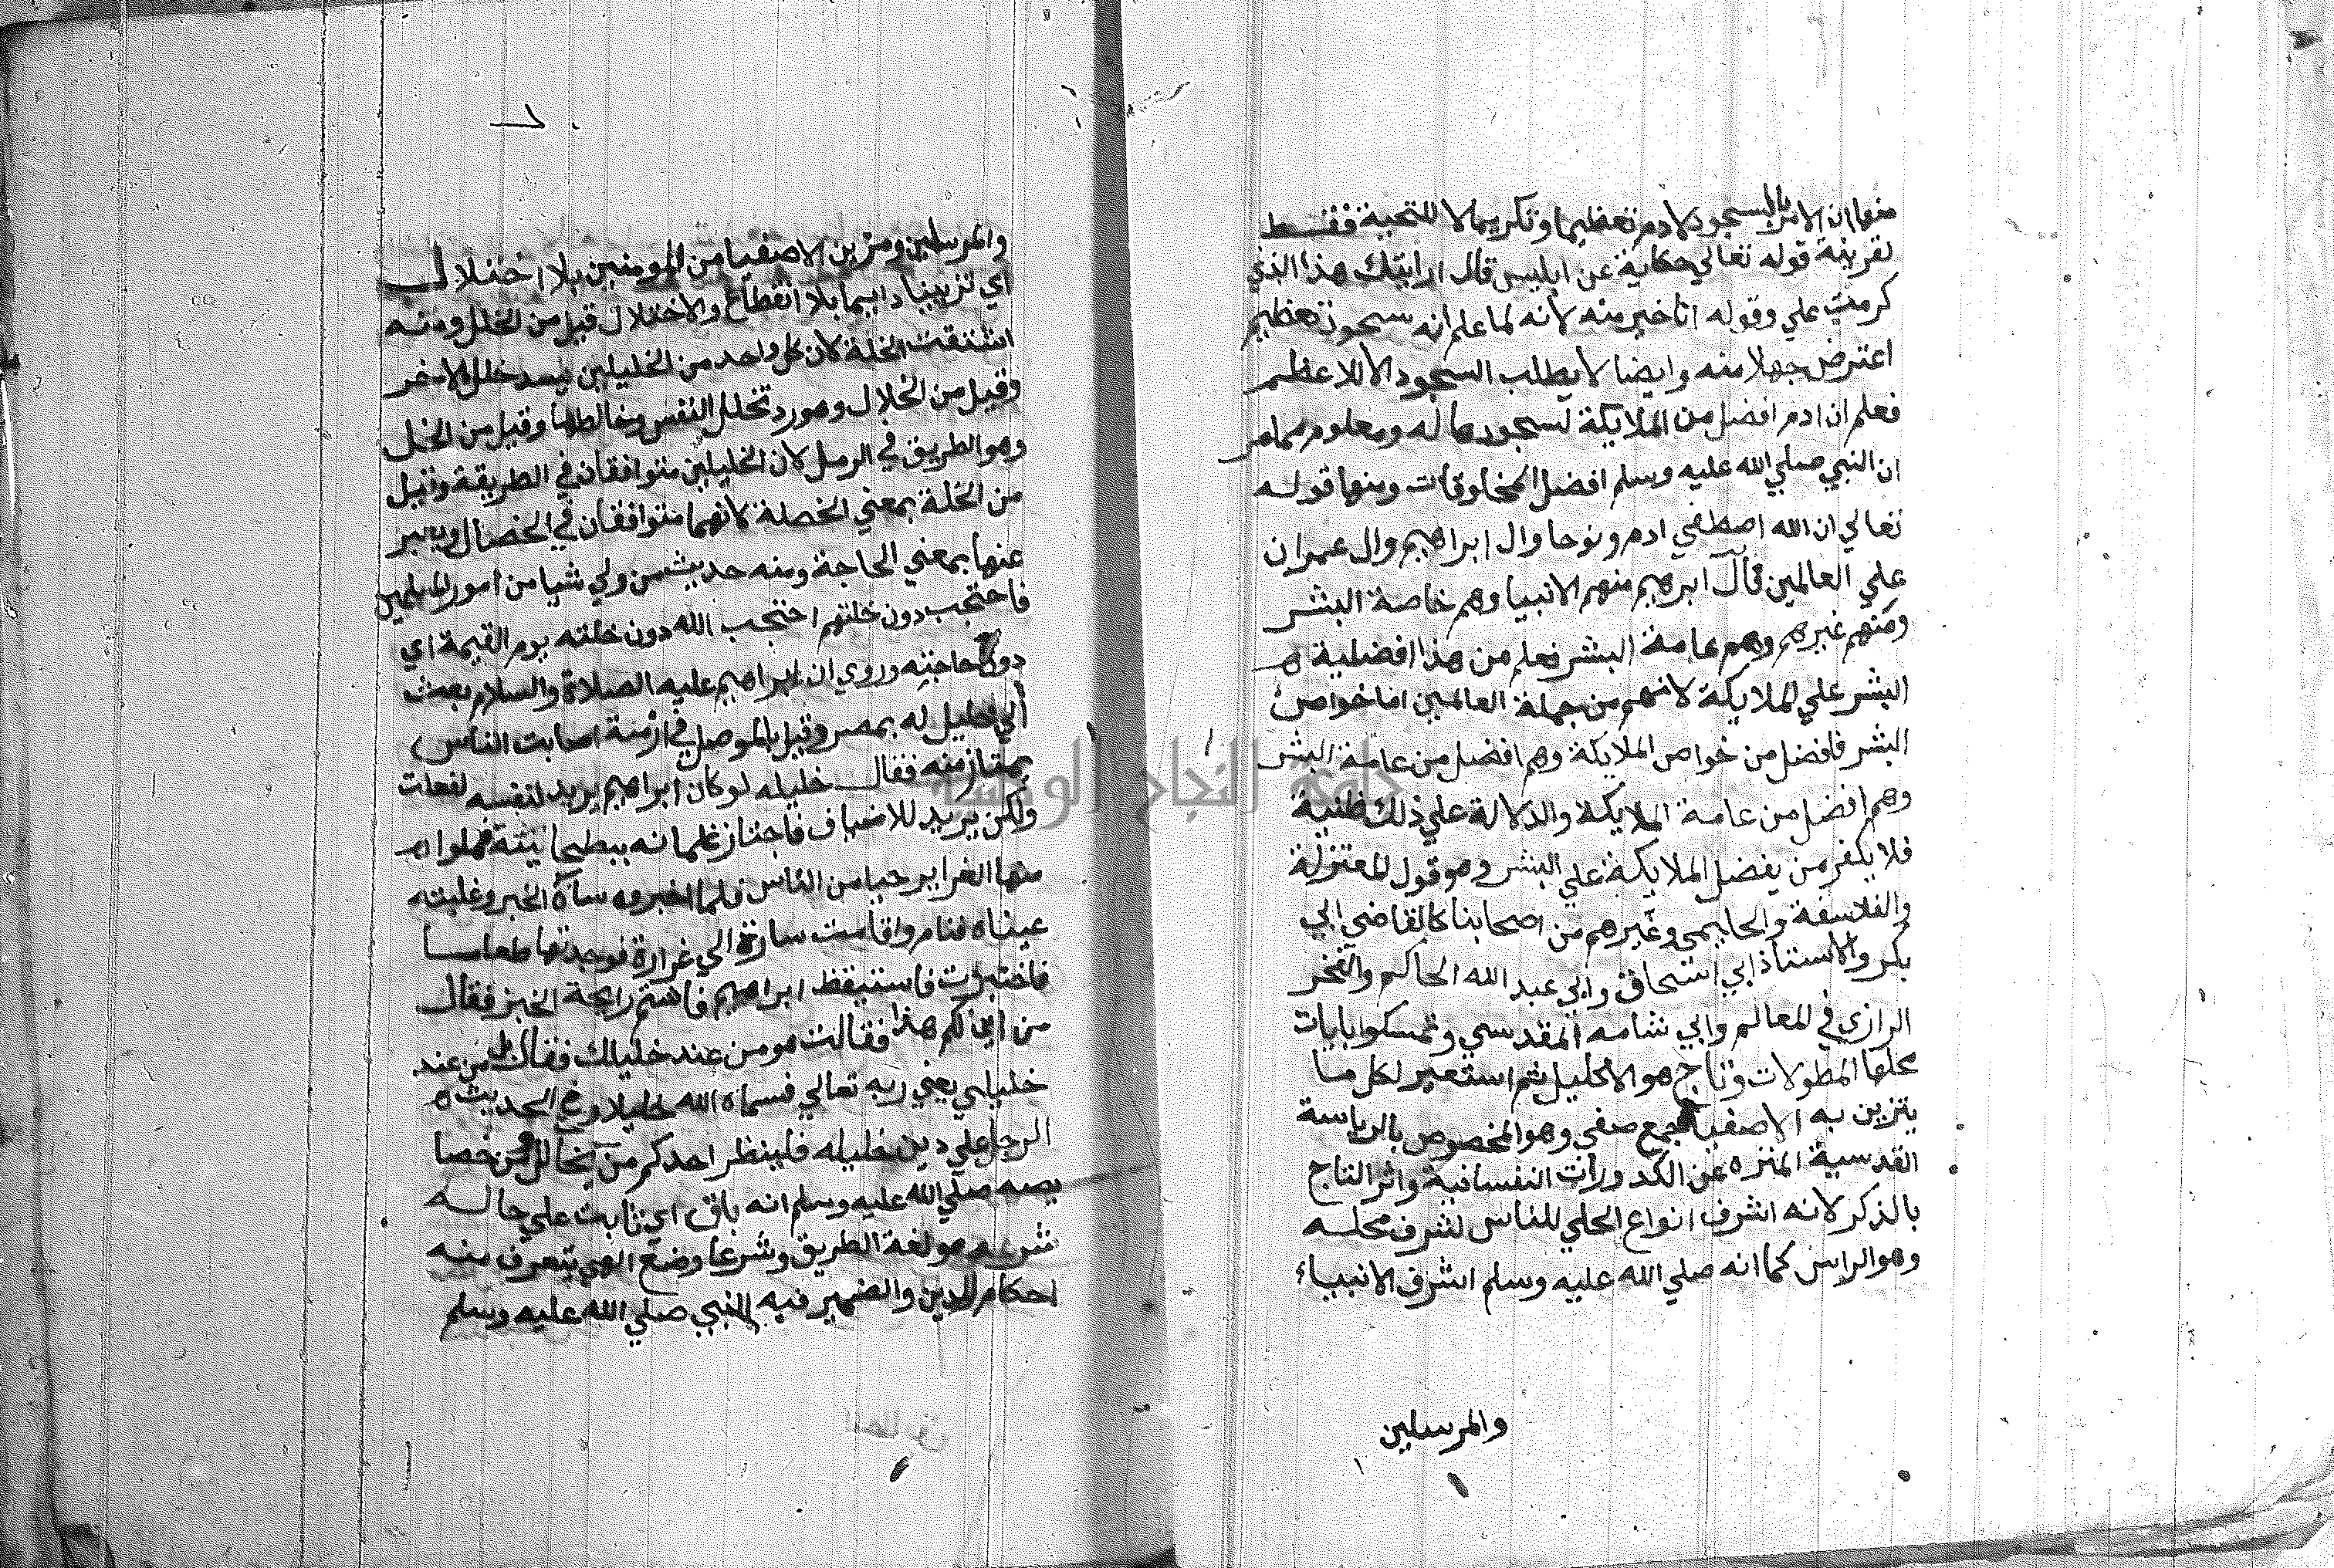 منها ان الامر بالسجود لادم تعظيما وتكريما لا للتحية فقط
بقرينة قوله تعالي حكاية عن ابليس قال ارايتك هذا الذي
كرمت علي وقوله انا خير منه لانه لما علم انه سجود تعظيم
اعترض جهلا منه وايضا لا يطلب السجود الا للاعظم
فعلم ان ادم افضل من الملايكة لسجودها له ومعلوم مما مر
ان النبي صلي الله عليه وسلم افضل المخلوقات ومنها قوله
تعالي ان الله اصطفي ادم ونوحا وال ابراهيم وال عمران
علي العالمين فآل ابرهيم منهم الانبيا وهم خاصة البشر
ومنهم غيرهم وهم عامة البشر فعلم من هذا افضلية
البشر علي الملايكة لانهم من جملة العالمين اما خواص
البشر فافضل من خواص الملايكة وهم افضل من عامة البشر
وهم افضل من عامة الملايكة والدلالة علي ذلك ظنية
فلا يكفر من يفضل الملايكة علي البشر وهو قول المعتزلة
والفلاسفة والحليمي وغيرهم من اصحابنا كالقاضي ابي
بكر والاستاذ ابي اسحاق وابي عبد الله الحاكم والفخر
الرازي في المعالم وابي شامه المقدسي وتمسكوا بايات
محلها المطولات وتاج هو الاكليل ثم استعير لكل ما
يتزين به الاصفيا جمع صفي وهو المخصوص بالرياسة
القدسية المنزه عن الكدورات النفسانية واثر التاج
بالذكر لانه اشرف انواع الحلي للناس لشرف محله
وهو الراس كما انه صلي الله عليه وسلم اشرف الانبياء
والمرسلين
والمرسلين ومزين الاصفيا من المومنين بلا اختلال
اي تزيينا دايما بلا انقطاع والاختلال قيل من الخلل ومنه
اشتقت الخلة لان كل واحد من الخليلين يسد خلل الاخر
وقيل من الخلال وهو رد تخلل النفس ومخالطها وقيل من الخل
وهو الطريق في الرمل لان الخليلين متوافقان في الطريقة وقيل
من الخلة بمعني الخصلة لانهما متوافقان في الخصال ويعبر
عنها بمعني الحاجة ومنه حديث من ولي شيا من امور المسلمين
فاحتجب دون خلتهم احتجب الله دون خلته يوم القيمة اي
دون حاجته وروي ان ابراهيم عليه الصلاة والسلام بعث
الي خليل له بمصر وقيل بالموصل في ازمة اصابت الناس
يمتار منه فقال خليله لو كان ابراهيم يريد لنفسه لفعلت
ولكن يريد للاضياف فاجتاز غلمانه ببطحا لينة فملوا
منها الغراير حيا من الناس فلما اخبروه ساه الخبر وغلبته
عيناه فنام واقامت سارة الي غرارة فوجدتها طعاما
فاختبزت فاستيقظ ابراهيم فاشتم رايحة الخبز فقال
من اين لكم هذا فقالت هو من عند خليلك فقال بل من عند
خليلي يعني ربه تعالي فسماه الله خليلا وفي الحديث
الرجل علي دين خليله فلينظر احدكم من يخالل ومن خصا
يصه صلي الله عليه وسلم انه باق اي ثابت علي حاله
شرعه هو لغة الطريق وشرعا وضع الهي يتعرف منه
احكام الدين والضمير فيه للنبي صلي الله عليه وسلم
جامعة النجاح الوطنية